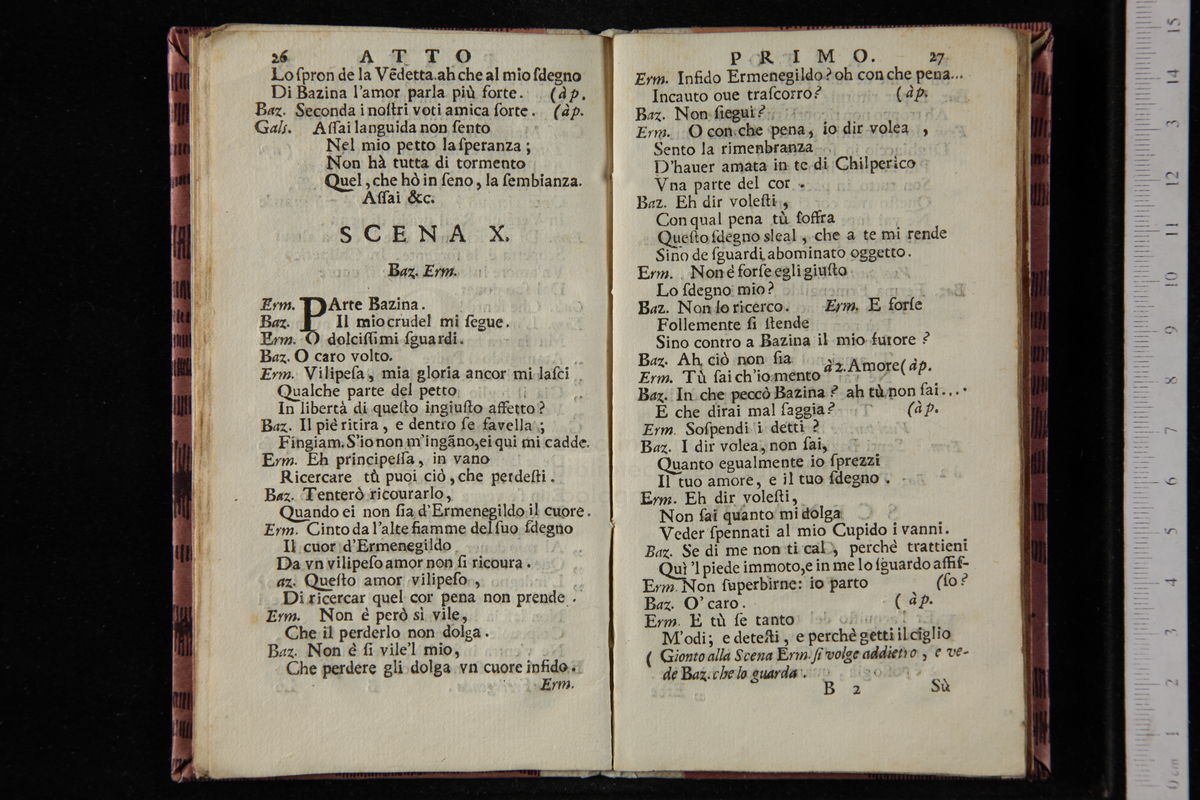 26 ATTO
Lo ſpron de la Vẽdetta.ah che al mio ſdegno
Di Bazina l'amor parla più forte. (àp.
Baz. Seconda i noſtri voti amica ſorte. (àp.
Gals. Aſſai languida non ſento
Nel mio petto la ſperanza;
Non hà tutta di tormento
Quel, che hò in ſeno, la ſembianza.
Aſſai &c.
SCENA X.
Baz. Erm.
Erm. PArte Bazina.
Baz. Il mio crudel mi ſegue.
Erm. O dolciſſimi ſguardi.
Baz. O caro volto.
Erm. Vilipeſa, mia gloria ancor mi laſci
Qualche parte del petto
In libertà di queſto ingiuſto affetto?
Baz. Il piè ritira, e dentro ſe favella;
Fingiam. S'io non m'ingãno,ei qui mi cadde.
Erm. Eh principeſſa, in vano
Ricercare tù puoi ciò, che perdeſti.
Baz. Tenterò ricourarlo,
Quando ei non ſia d'Ermenegildo il cuore.
Erm. Cinto da l'alte fiamme del ſuo ſdegno
Il cuor d'Ermenegildo
Da vn vilipeſo amor non ſi ricoura.
az. Queſto amor vilipeſo,
Di ricercar quel cor pena non prende.
Erm. Non è però sì vile,
Che il perderlo non dolga.
Baz. Non è ſi vile'l mio,
Che perdere gli dolga vn cuore infido.
Erm.
PRIMO. 27
Erm. Infido Ermenegildo? oh con che pena...
Incauto oue traſcorro? (àp.
Baz. Non ſiegui?
Erm. O con che pena, io dir volea,
Sento la rimenbranza
D'hauer amata in te di Chilperico
Vna parte del cor.
Baz. Eh dir voleſti,
Con qual pena tù ſoffra
Queſto ſdegno sleal, che a te mi rende
Sino de ſguardi abominato oggetto.
Erm. Non è forſe egli giuſto
Lo ſdegno mio?
Baz. Non lo ricerco. Erm. E forſe
Follemente ſi ſtende
Sino contro a Bazina il mio furore?
Baz. Ah ciò non ſia
à2. Amore (àp.
Erm. Tù ſai ch'io mento
Baz. In che peccò Bazina? ah tù non ſai...
E che dirai mal ſaggia? (àp.
Erm. Soſpendi i detti?
Baz. I dir volea, non ſai,
Quanto egualmente io ſprezzi
Il tuo amore, e il tuo ſdegno.
Erm. Eh dir voleſti,
Non ſai quanto mi dolga
Veder ſpennati al mio Cupido i vanni.
Baz. Se di me non ti cal, perchè trattieni
Quì 'l piede immoto,e in me lo ſguardo affiſ-
Erm. Non ſuperbirne: io parto (ſo?
Baz. O' caro. (àp.
Erm. E tù ſe tanto
M'odi; e deteſti, e perchè getti il ciglio
( Gionto alla Scena Erm. ſi volge addietro, e ve-
de Baz. che lo guarda.
B 2 Sù